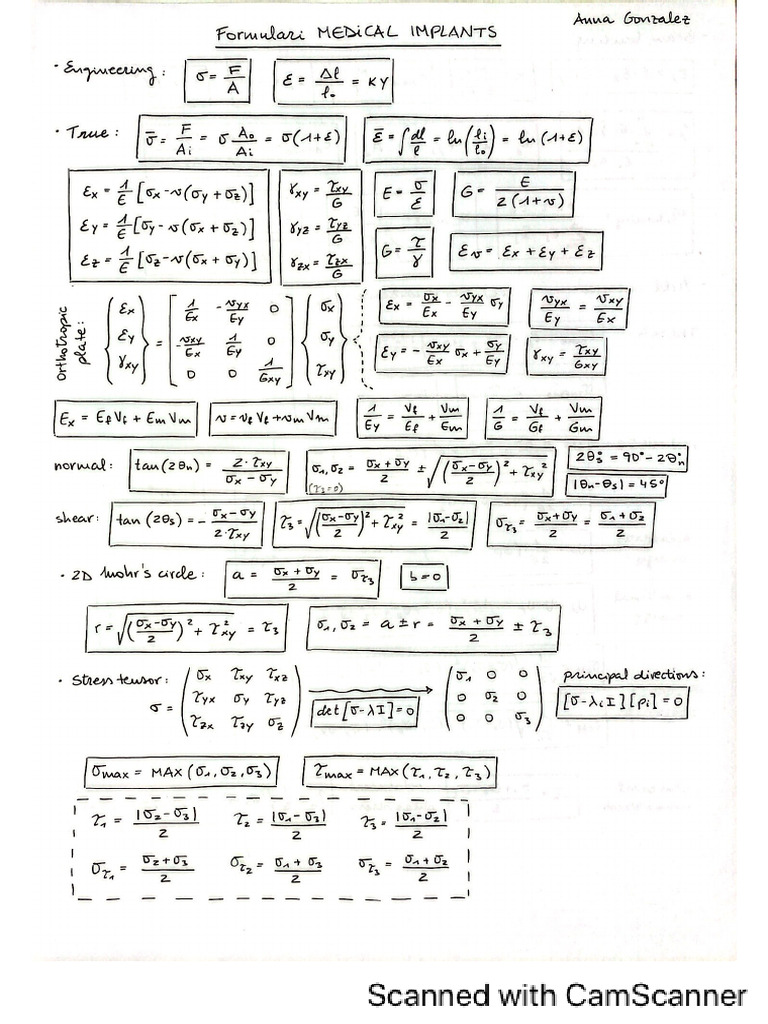 Anna Gonzalez
Formulari MEDICAL IMPLANTS
· Engineering: σ = F/A   ε = Δl/l₀ = κy
· True: σ̄ = F/Ai = σ A₀/Ai = σ(1+ε)   ε̄ = ∫dl/l = ln(li/l₀) = ln(1+ε)
εx = 1/E [σx - ν(σy + σz)]   γxy = τxy/G   E = σ/ε   G = E/2(1+ν)
εy = 1/E [σy - ν(σx + σz)]   γyz = τyz/G
εz = 1/E [σz - ν(σx + σy)]   γzx = τzx/G   G = τ/γ   εv = εx + εy + εz
Orthotropic plate:
{εx εy γxy} = [1/Ex -νyx/Ey 0; -νxy/Ex 1/Ey 0; 0 0 1/Gxy] {σx σy τxy}
εx = σx/Ex - νyx/Ey σy   νyx/Ey = νxy/Ex
εy = - νxy/Ex σx + σy/Ey   γxy = τxy/Gxy
Ex = Ef Vf + Em Vm   ν = νf Vf + νm Vm   1/Ey = Vf/Ef + Vm/Em   1/G = Vf/Gf + Vm/Gm
normal: tan(2θn) = 2·τxy/σx - σy   σ1,σ2 = σx + σy/2 ± √((σx-σy/2)² + τxy²)   2θs° = 90° - 2θn°
(τ3=0)   |θn-θs| = 45°
shear: tan(2θs) = - σx-σy/2·τxy   τ3 = √((σx-σy/2)² + τxy²) = |σ1-σ2|/2   στ3 = σx+σy/2 = σ1+σ2/2
· 2D Mohr's circle: a = σx + σy/2 = στ3   b=0
r = √((σx-σy/2)² + τxy²) = τ3   σ1,σ2 = a ± r = σx + σy/2 ± τ3
· Stress tensor: σ = (σx τxy τxz; τyx σy τyz; τzx τzy σz)   det[σ-λI]=0   (σ1 0 0; 0 σ2 0; 0 0 σ3)   principal directions:
[σ-λiI][pi]=0
σmax = MAX(σ1,σ2,σ3)   τmax = MAX(τ1,τ2,τ3)
τ1 = |σ2-σ3|/2   τ2 = |σ1-σ3|/2   τ3 = |σ1-σ2|/2
στ1 = σ2+σ3/2   στ2 = σ1+σ3/2   στ3 = σ1+σ2/2
Scanned with CamScanner